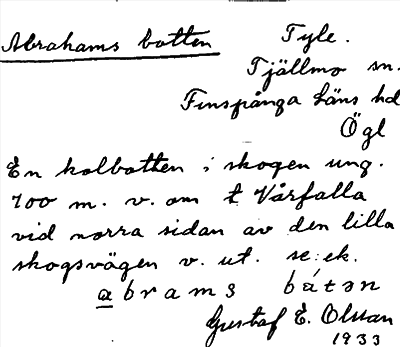 Abrahams botten Tyle.
Tjällmo sn.
Finspånga läns hd
Ögl
En kolbotten i skogen ung.
700 m. v. om t Vårfalla
vid norra sidan av den lilla
skogsvägen v. ut. se: ek.
abrams bátən
Gustaf E. Olsson
1933